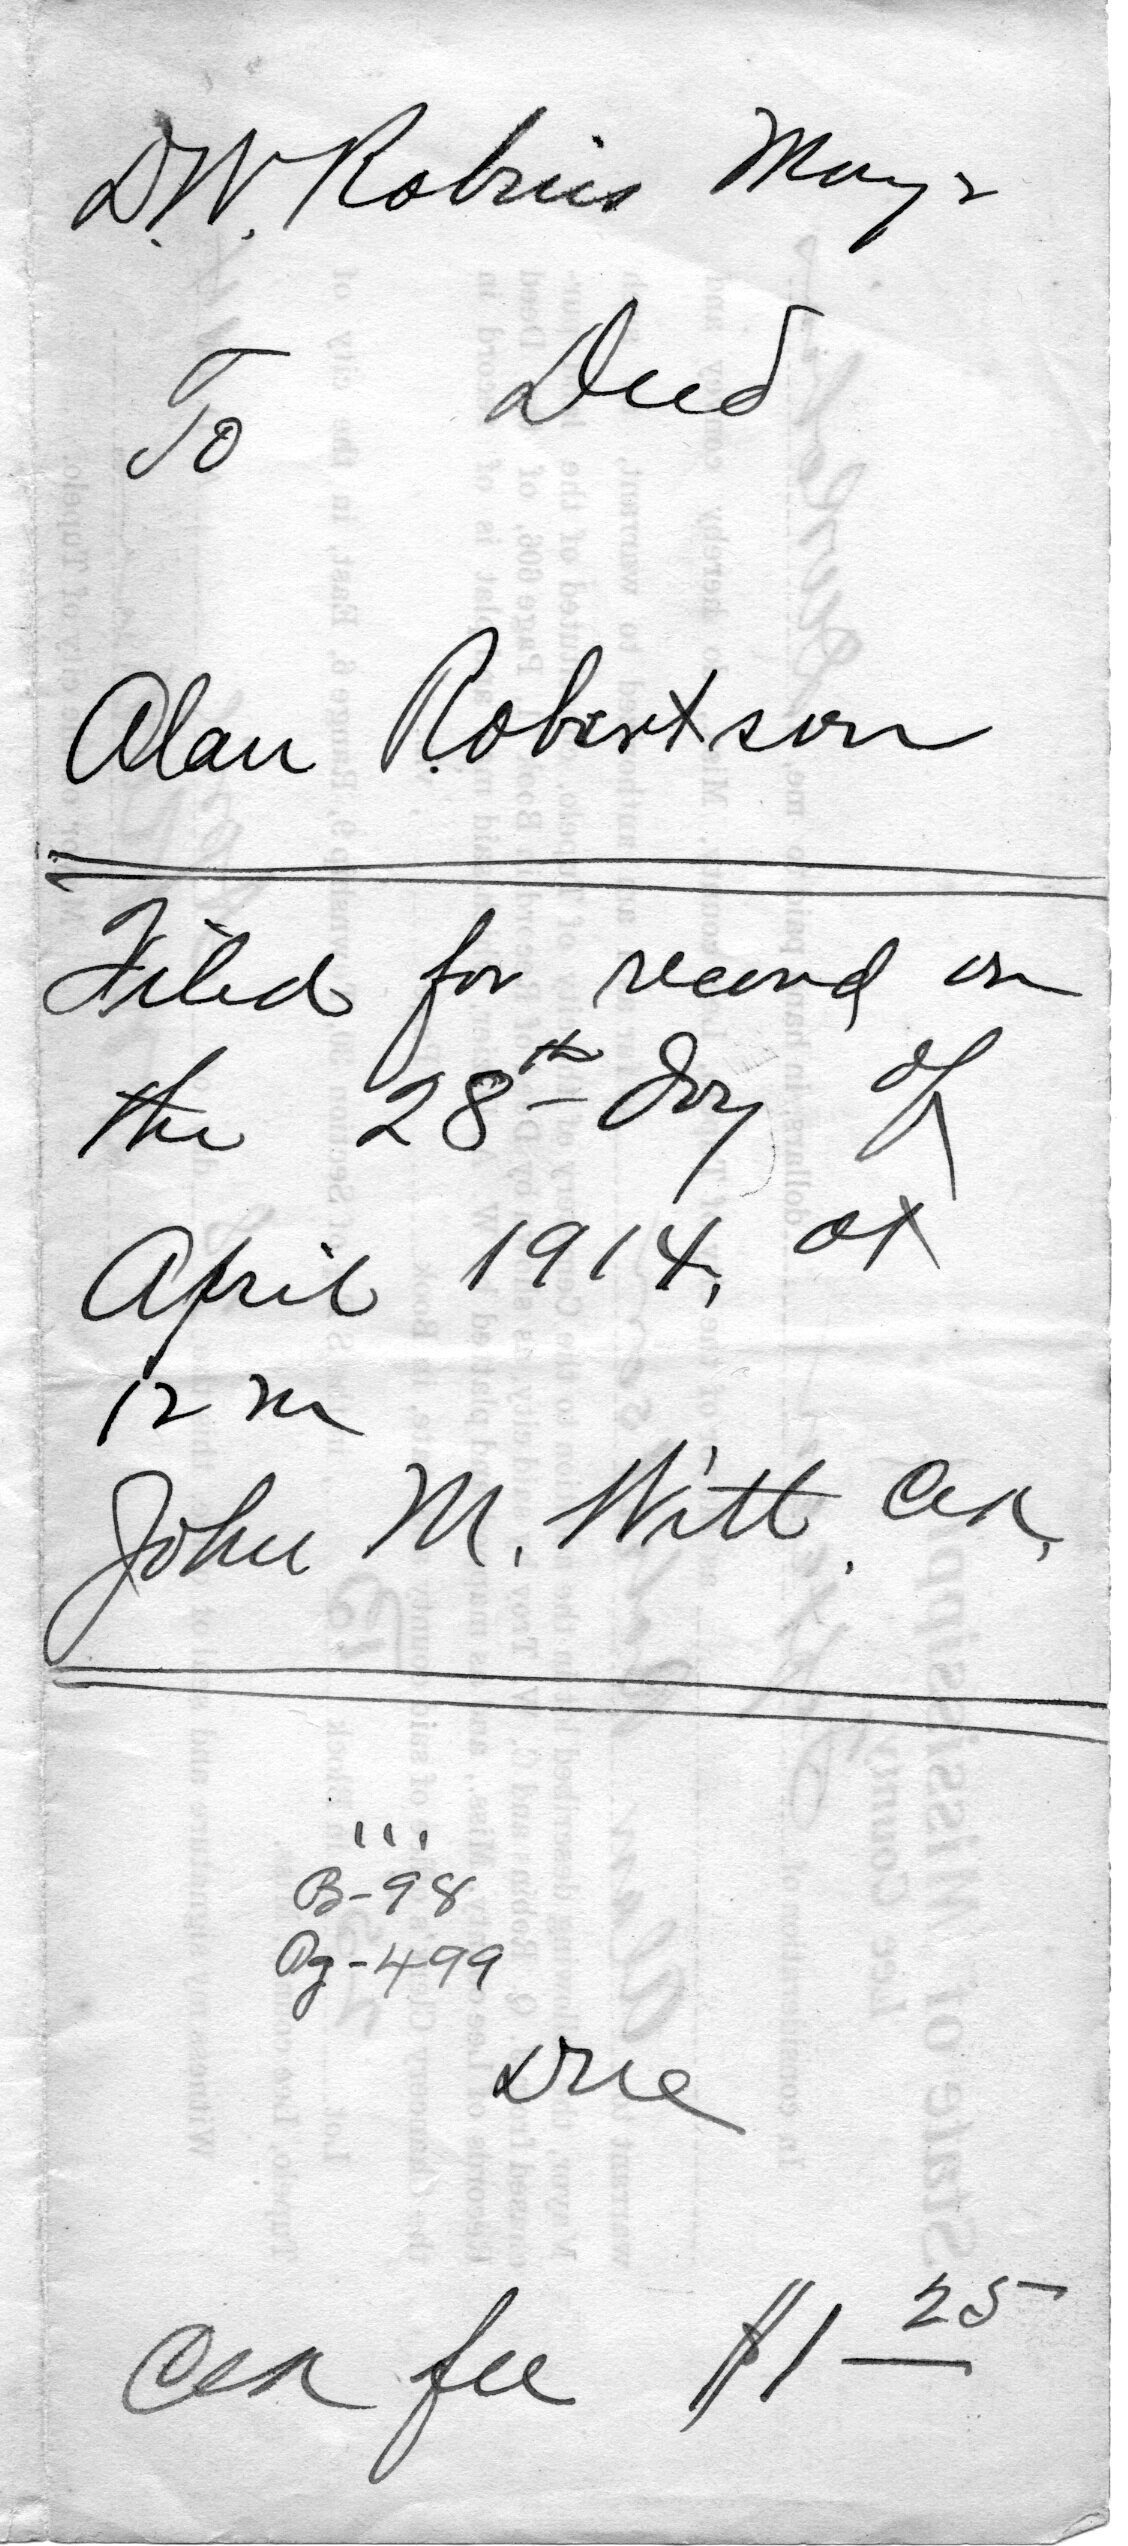 D.W. Robins Mayr
To Deed
Alan Robertson
Filed for record on
the 28th day of
April 1914, at
12 m
John M. Witt. Clk.
B-98
Pg-499
Due
Clk fee $1 25